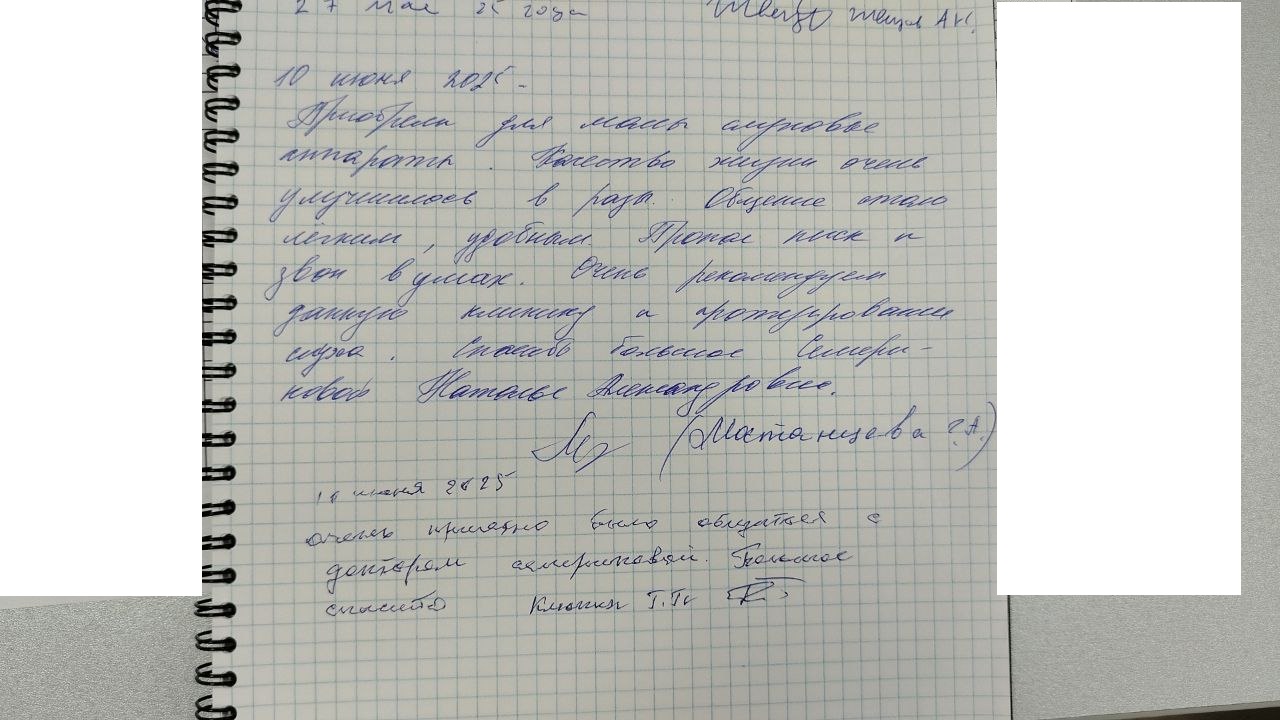 27 мая 25 года
10 июня 2025.
Приобрели для мамы слуховые
аппараты. Качество жизни очень
улучшилось в разы. Общение стало
лёгким, удобным. Пропал писк и
звон в ушах. Очень рекомендуем
данную клинику и протезирование
слуха. Спасибо большое Семери-
ковой Наталье Александровне.
(Матанцева Г.А.)
июня 2025
очень приятно было общаться с
доктором Семериковой. Большое
спасибо